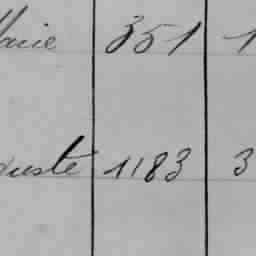 Marie 351 1
uste 1183 3